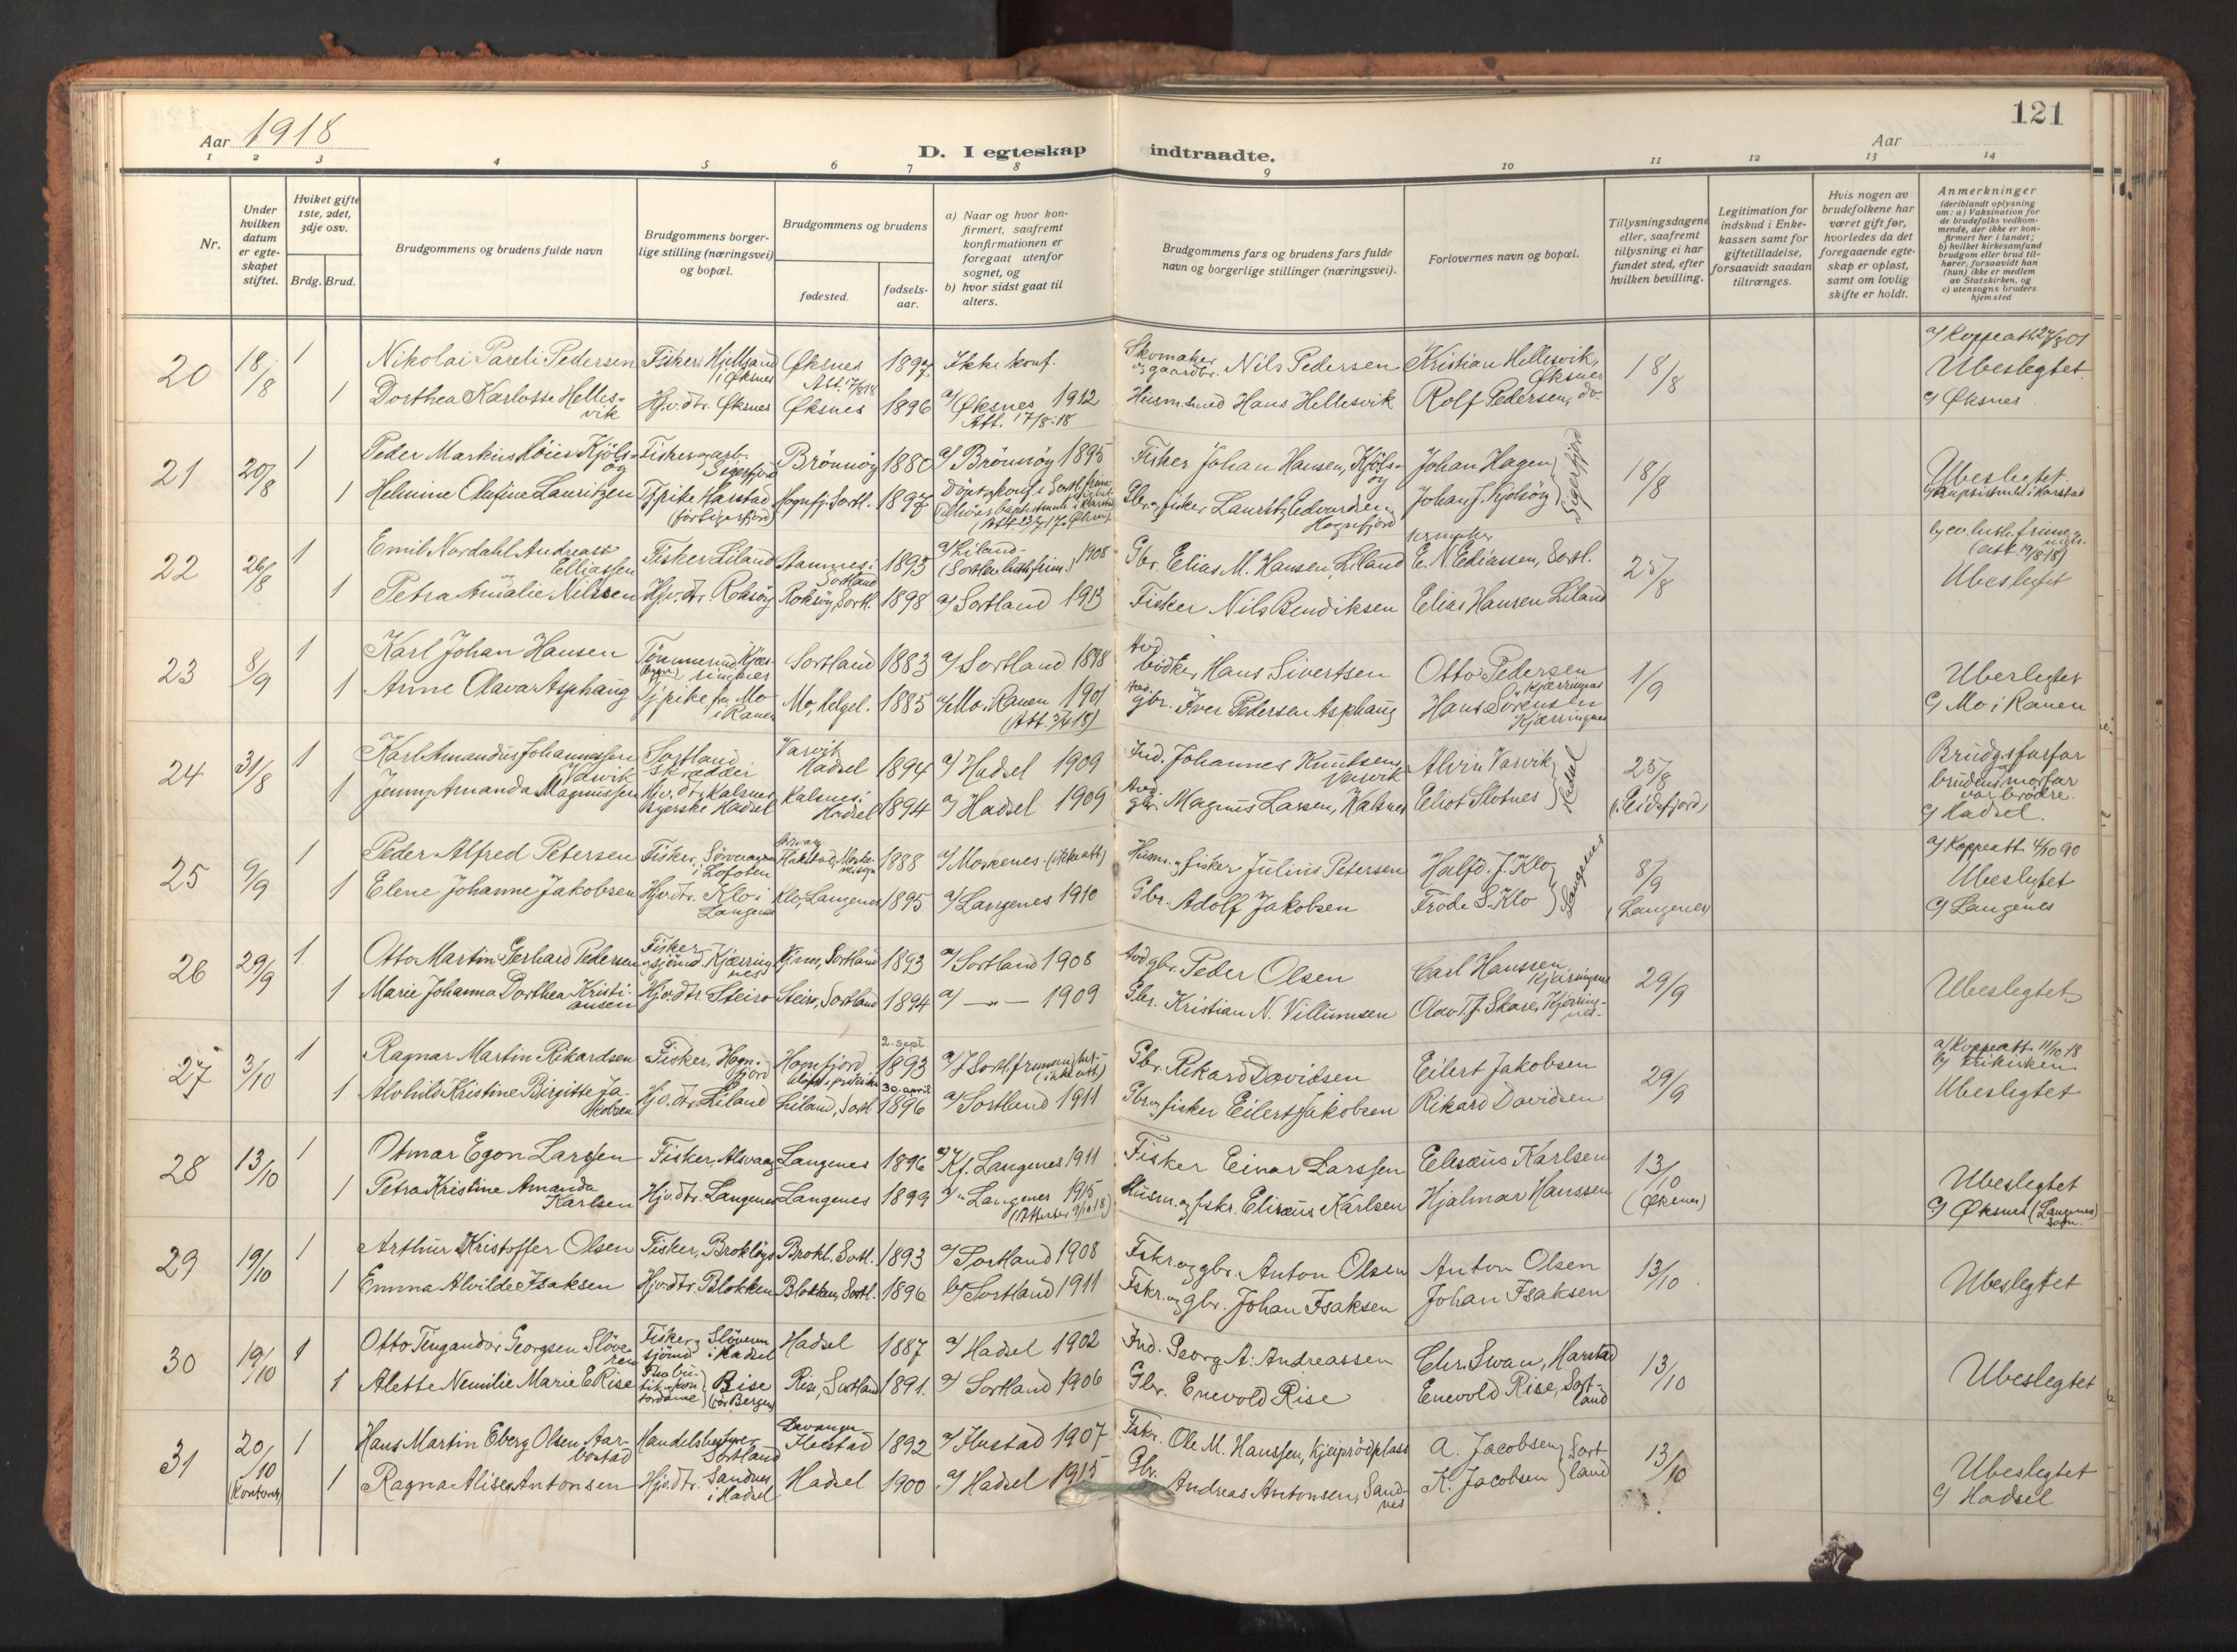 121
Aar 1918
D. I egteskap indtraadte.
Aar
1 2 3 4 5 6 7 8 9 10 11 12 13 14
Nr.
Under hvilken datum er egte-skapet stiftet.
Hviket gifte 1ste, 2det, 3dje osv.
Brdg. Brud.
Brudgommens og brudens fulde navn
Brudgommens borger-lige stilling (næringsvei) og bopæl.
Brudgommens og brudens
fødested.
fødsels-aar.
a) Naar og hvor kon-firmert, saafremt konfirmationen er foregaat utenfor sognet, og
b) hvor sidst gaat til alters.
Brudgommens fars og brudens fars fulde navn og borgerlige stillinger (næringsvei).
Forlovernes navn og bopæl.
Tillysningsdagene eller, saafremt tillysning ei har fundet sted, efter hvilken bevilling.
Legitimation for indskud i Enke-kassen samt for giftetilladelse, forsaavidt saadan tiltrænges.
Hvis nogen av brudefolkene har været gift før, hvorledes da det foregaaende egte-skap er opløst, samt om lovlig skifte er holdt.
Anmerkninger (deriblandt oplysning om: a) Vaksination for de brudefolks vedkom-mende, der ikke er kon-firmert her i landet; b) hvilket kirkesamfund brudgom eller brud til-hører, forsaavidt han (hun) ikke er medlem av Statskirken, og c) utensogns bruders hjemsted
20 18/8 1 Nikolai Pareli Pedersen Fisker, i Øksnes Øksnes 1897 Ikke konf. Skomaker og gaardbr. Nils Pedersen Kristian Hellesvik, Øksnes 18/8 a) Koppeatt. 27/8 01 Ubeslegtet
1 Dorthea Karlotte Helles-vik Hjv. dtr. Øksnes Øksnes 1896 a) Øksnes 1912 Att. 17/8-18 Husm. smed Hans Hellesvik Rolf Pedersen, do. c) Øksnes
21 20/8 1 Peder Markus Høier Kjøls-øy Fisker og arb. Sigerfjord Brönnöy 1880 a) Brönnöy 1895 Fisker Johan Hansen, Kjöls-öy Johan Hagen Sigerfjord 18/8 Ubeslegtet
1 Helmine Olufine Lauritzen Tj.pike Harstad (før Sigerfjord) Hognfj. Sortl. 1897 Gbr. og fisker Lauritz Edvardsen Hognfjord Johan J. Kjölsöy
22 26/8 1 Emil Nordahl Andreas Elliassen Fisker Liland Stamnes i Sortland 1893 a) Liland 1908 Gbr. Elias M. Hansen, Liland E. N. Ediassen, Sortl. 25/8 (att. 19/8-18) Ubeslegtet
1 Petra Amalie Nilssen Hjv. dtr. Roksöy Roksöy, Sortl. 1898 a) Sortland 1913 Fisker Nils Bendiksen Elias Hansen Liland
23 8/9 1 Karl Johan Hansen Sortland 1883 a) Sortland 1898 Avd. bödker Hans Sivertsen Otto Pedersen Kjærringnes 1/9 Ubeslegtet
1 Anne Olava Asphaug Tj.pike fra Mo i Ranen Mo, Helgel. 1885 a) Mo i Ranen 1901 gbr. Iver Pedersen Asphaug Hans Sörensen Kjærringnes c) Mo i Ranen
24 31/8 1 Karl Amandus Johannessen Varvik Sortland skrædder Varvik Hadsel 1894 a) Hadsel 1909 Ind. Johannes Knutsen Varvik Alvin Varvik Hadsel 25/8 (i Eidsfjord) Brudg. farfar brudens morfar var brödre.
1 Jenny Amanda Magnussen Hjv. dtr. Kalsnes syerske Hadsel Kalsnes i Hadsel 1894 a) Hadsel 1909 Avd. gbr. Magnus Larsen, Kalsnes Eliot Slotnes c) Hadsel.
25 9/9 1 Peder Alfred Petersen Fisker, Sörvaagen i Lofoten 1888 a) Moskenes (ikke att) Husm. og fisker Julius Petersen Halfd. J. Klo Langenes 8/9 (Langenes) a) Koppeatt. 4/10 90 Ubeslegtet
1 Elene Johanne Jakobsen Hjv. dtr. Klo i Langenes Klo, Langenes 1895 a) Langenes 1910 Gbr. Adolf Jakobsen Frode S. Klo c) Langenes
26 29/9 1 Otto Martin Gerhard Pedersen Fisker og sjömd. Kjærring-nes Kj.nes, Sortland 1893 a) Sortland 1908 Avd gbr. Peder Olsen Carl Hanssen Kjærringnes 29/9 Ubeslegtet
1 Marie Johanna Dorthea Kristi-ansen Hjv. dtr. Steiro Steiro, Sortland 1894 a) — „ — 1909 Gbr. Kristian N. Villumsen Olav T. J. Skare, Kjærring-nes
27 3/10 1 Ragnar Martin Rikardsen Fisker, Hogn-fjord Hognfjord 2. sept. 1893 Gbr. Rikard Davidsen Eilert Jakobsen 29/9 a) Koppeatt. 11/10 18 b) frikirken
1 Alvhild Kristine Birgitte Ja-kobsen Hjv. dtr. Liland Liland, Sortl. 30. april 1896 a) Sortland 1911 Gbr. og fisker Eilert Jakobsen Rikard Davidsen Ubeslegtet
28 13/10 1 Otmar Egon Larssen Fisker, Alsvaag Langenes 1896 Kf. Langenes 1911 Fisker Einar Larssen Elisæus Karlsen 13/10 (Øksnes) Ubeslegtet
1 Petra Kristine Amanda Karlsen Hjv. dtr. Langenes Langenes 1899 a) Langenes 1915 Husm. og fiskr. Elisæus Karlsen Hjalmar Hanssen c) Øksnes (Langenes sogn.
29 19/10 1 Arthur Kristoffer Olsen Fisker, Broklöys Brokl. Sortl. 1893 a) Sortland 1908 Fskr. og gbr. Anton Olsen Anton Olsen 13/10 Ubeslegtet
1 Emma Alvilde Isaksen Hjv. dtr. Blokken Blokken, Sortl. 1896 b) Sortland 1911 Fskr. og gbr. Johan Isaksen Johan Isaksen
30 19/10 1 Otto Georgsen Slöve-ren Fisker og sjömd. Slöveren i Hadsel Hadsel 1887 a) Hadsel 1902 Ind. Georg A. Andreassen Chr. Swan, Harstad 13/10 Ubeslegtet
1 Alette Nemilie Marie E Rise Rise (för Bergen) Rise, Sortland 1891. a) Sortland 1906 Gbr. Enevold Rise Enevold Rise, Sort-land
31 20/10 (Kontoret) 1 Hans Martin Eberg Olsen Aar-bostad Handelsbestyrer Sortland Ibestad 1892 a) Ibestad 1907 Fskr. Ole M. Hanssen, A. Jacobsen Sort-land 13/10 Ubeslegtet
1 Ragna Alise Antonsen Hjv. dtr. Sandnes i Hadsel Hadsel 1900 a) Hadsel 1915 Gbr. Andreas Antonsen, Sand-nes K. Jacobsen c) Hadsel